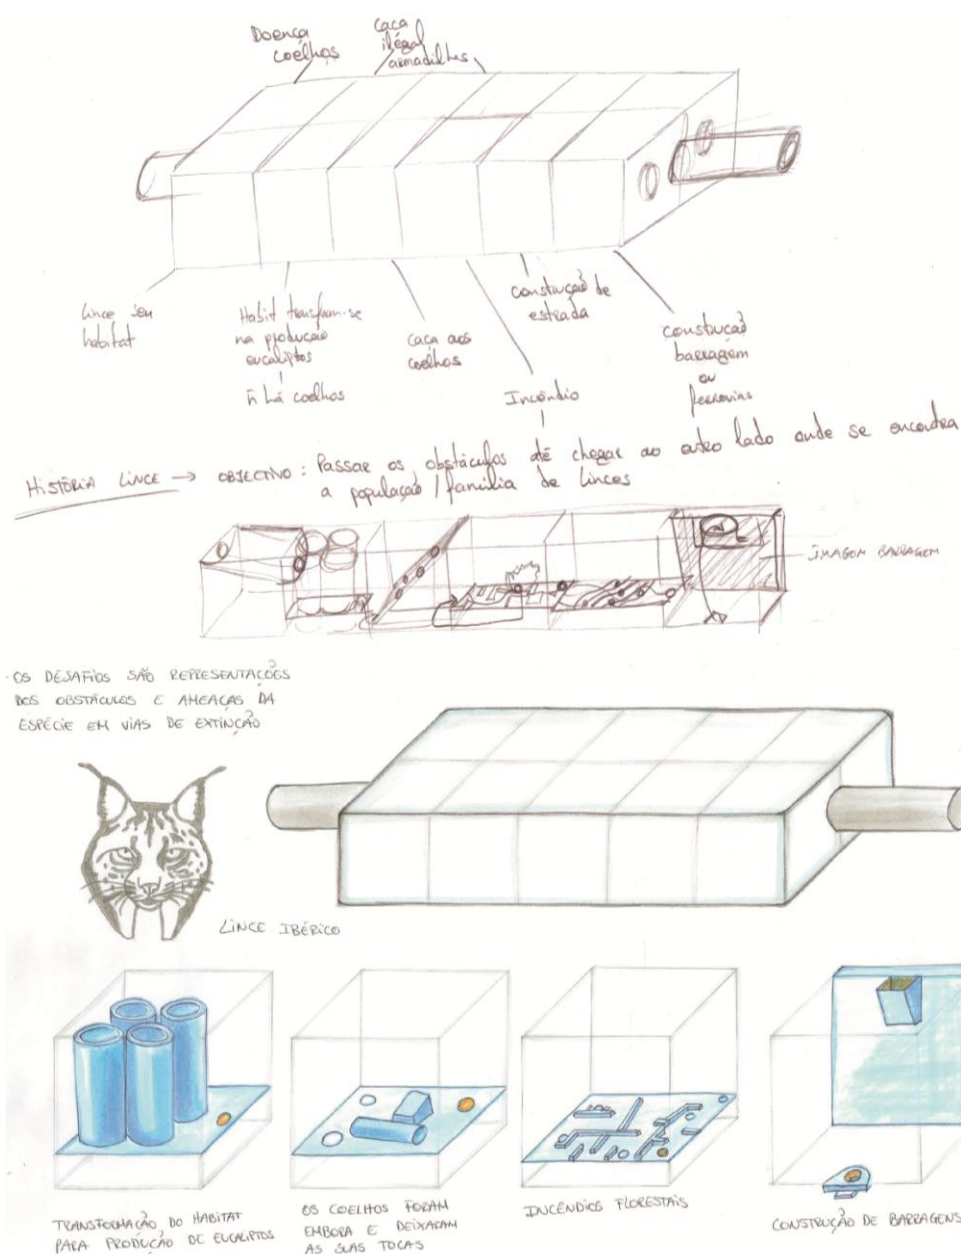 Doença
coelhos
caça
ilégal
armadilhas
Lince seu
habitat
Habit transfom-se
na produção
eucaliptos
ñ há coelhos
caça aos
coelhos
Incêndio
construção de
estrada
construção
barragem
ou
ferrovias
HISTÓRIA LINCE → OBJECTIVO: Passar os obstáculos até chegar ao outro lado onde se encontra
a população / família de linces
IMAGEM BARRAGEM
· OS DESAFIOS SÃO REPRESENTAÇÕES
DOS OBSTÁCULOS E AMEAÇAS DA
ESPÉCIE EM VIAS DE EXTINÇÃO
LINCE IBÉRICO
TRANSFORMAÇÃO DO HABITAT
PARA PRODUÇÃO DE EUCALIPTOS
OS COELHOS FORAM
EMBORA E DEIXARAM
AS SUAS TOCAS
INCÊNDIOS FLORESTAIS
CONSTRUÇÃO DE BARRAGENS